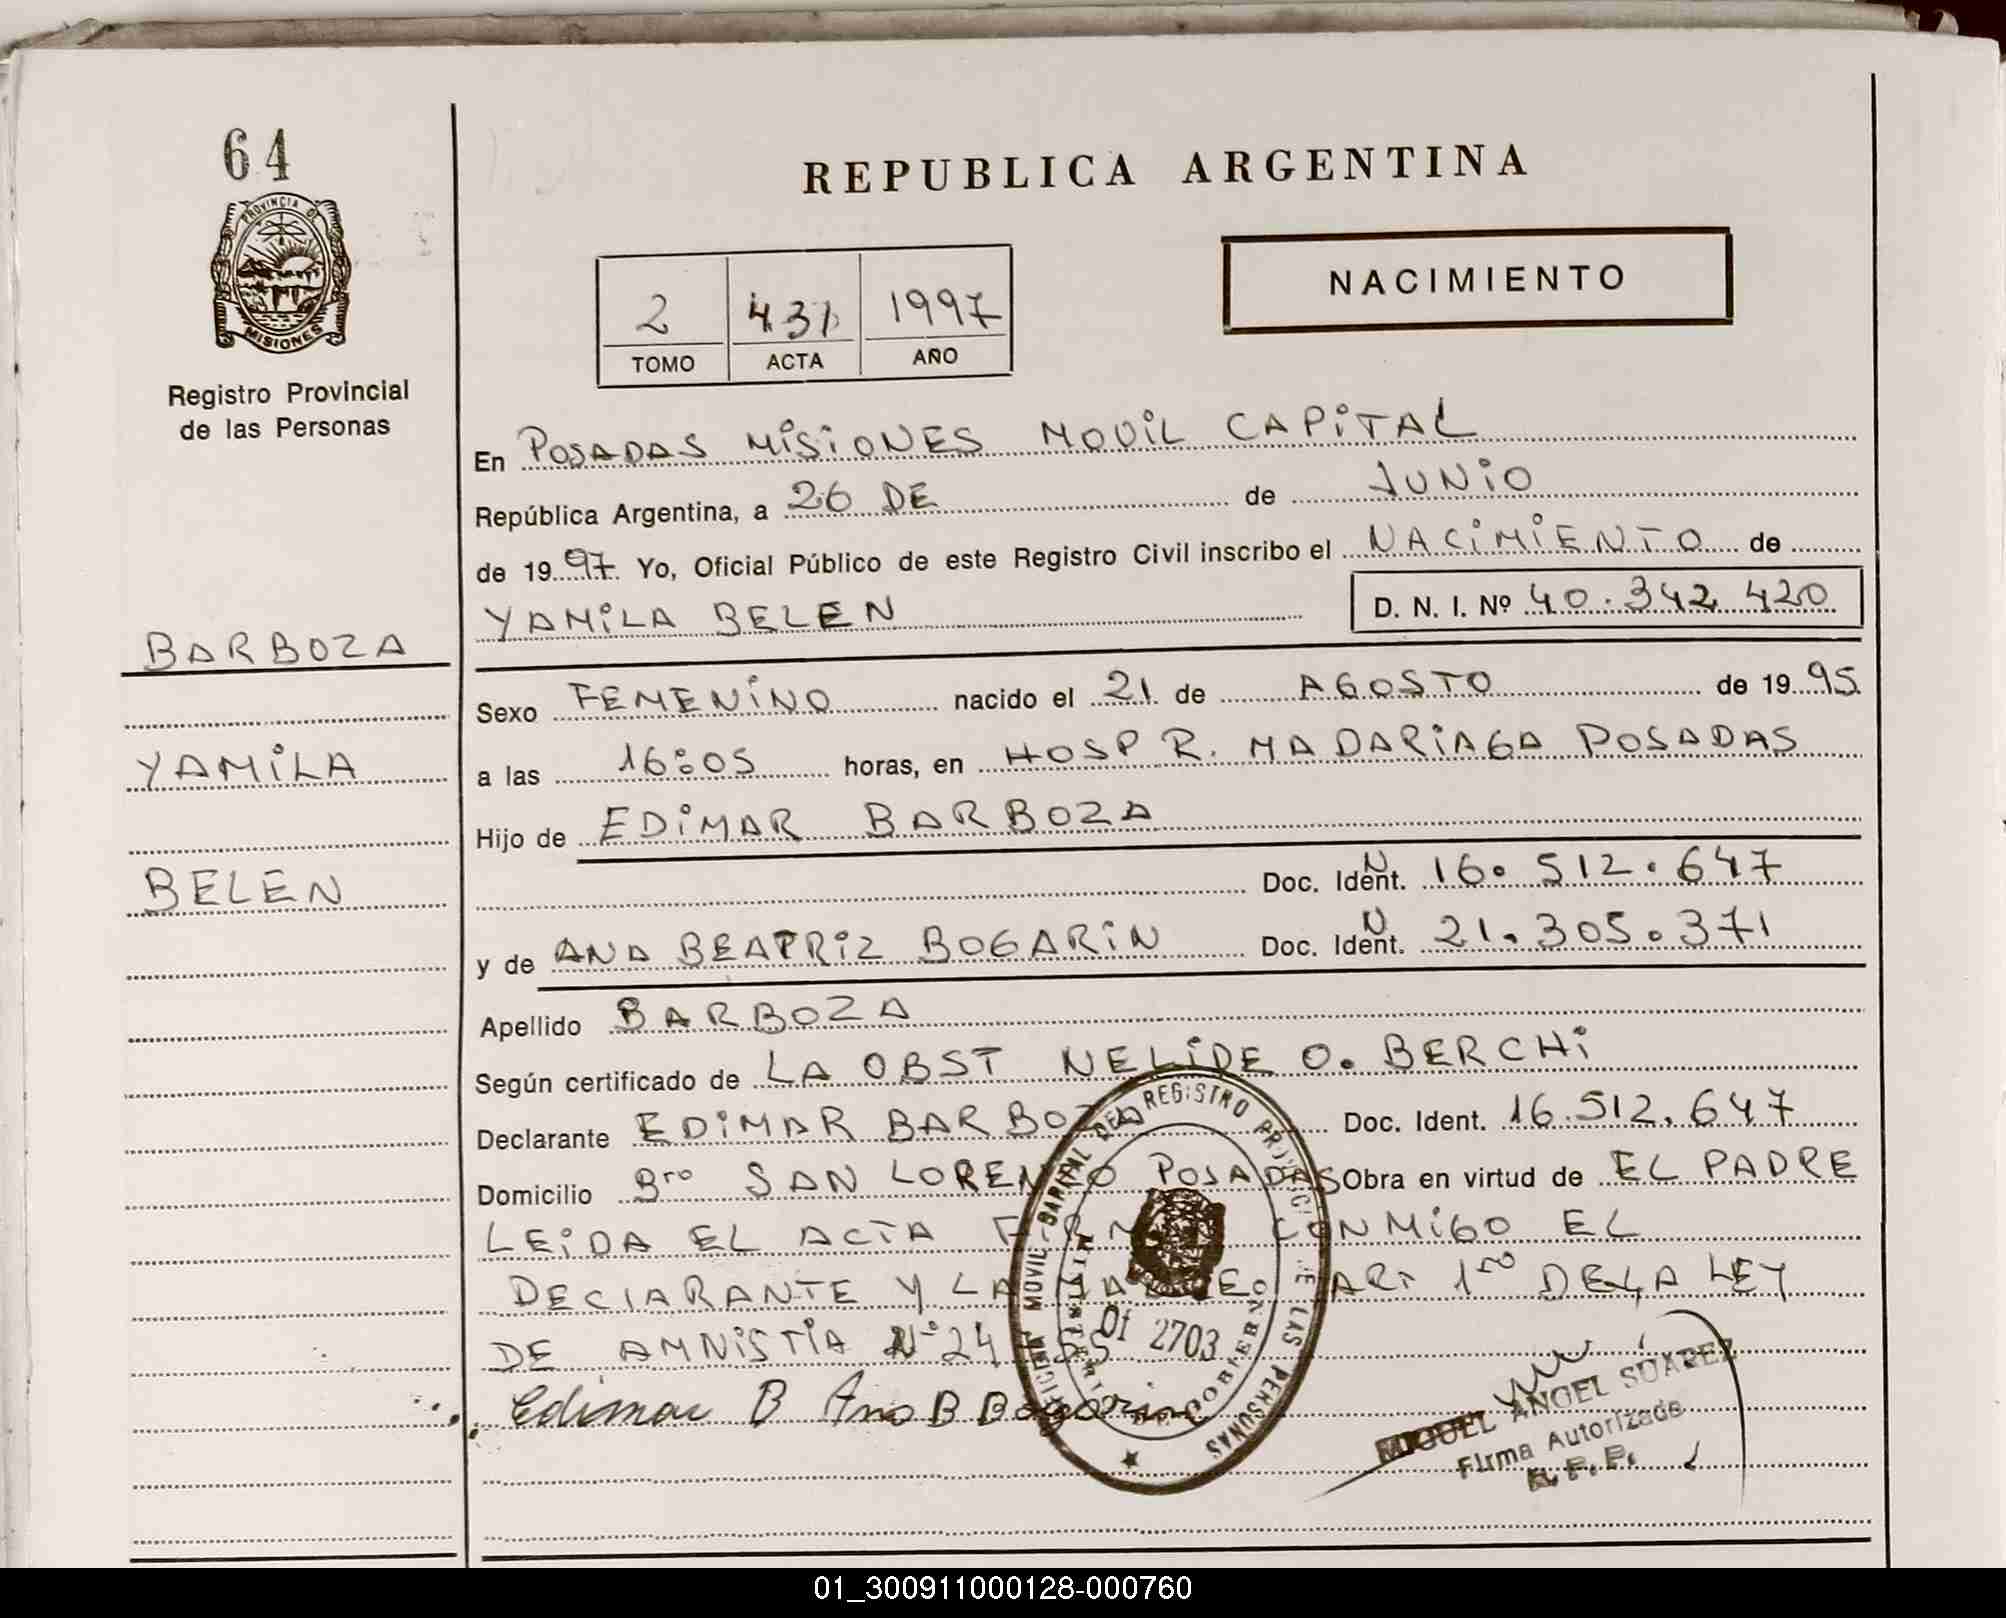 64
PROVINCIA DE
MISIONES
Registro Provincial
de las Personas
REPUBLICA ARGENTINA
2 431 1997
TOMO ACTA AÑO
NACIMIENTO
En POSADAS MISIONES MOVIL CAPITAL
República Argentina, a 26 DE de JUNIO
de 1997 Yo, Oficial Público de este Registro Civil inscribo el NACIMIENTO de
YAMILA BELEN D. N. I. Nº 40.342.420
BARBOZA
YAMILA
BELEN
Sexo FEMENINO nacido el 21 de AGOSTO de 1995
a las 16:05 horas, en HOSP R. MADARIAGA POSADAS
Hijo de EDIMAR BARBOZA
Doc. Ident. N 16.512.647
y de ANA BEATRIZ BOGARIN Doc. Ident. N 21.305.371
Apellido BARBOZA
Según certificado de LA OBST NELIDE O. BERCHI
Declarante EDIMAR BARBOZA Doc. Ident. 16.512.647
Domicilio Bro SAN LORENZO POSADAS Obra en virtud de EL PADRE
LEIDA EL ACTA CONMIGO EL
DECLARANTE Y LA ART 1ro DE LA LEY
DE AMNISTIA Nº 24
Edimar B Ana B Bogarin
OFICINA MOVIL CAPITAL DEL REGISTRO PROVINCIAL DE LAS PERSONAS
MINISTERIO DE GOBIERNO
01 2703
MIGUEL ANGEL SUAREZ
Firma Autorizada
R. P. P.
01_300911000128-000760